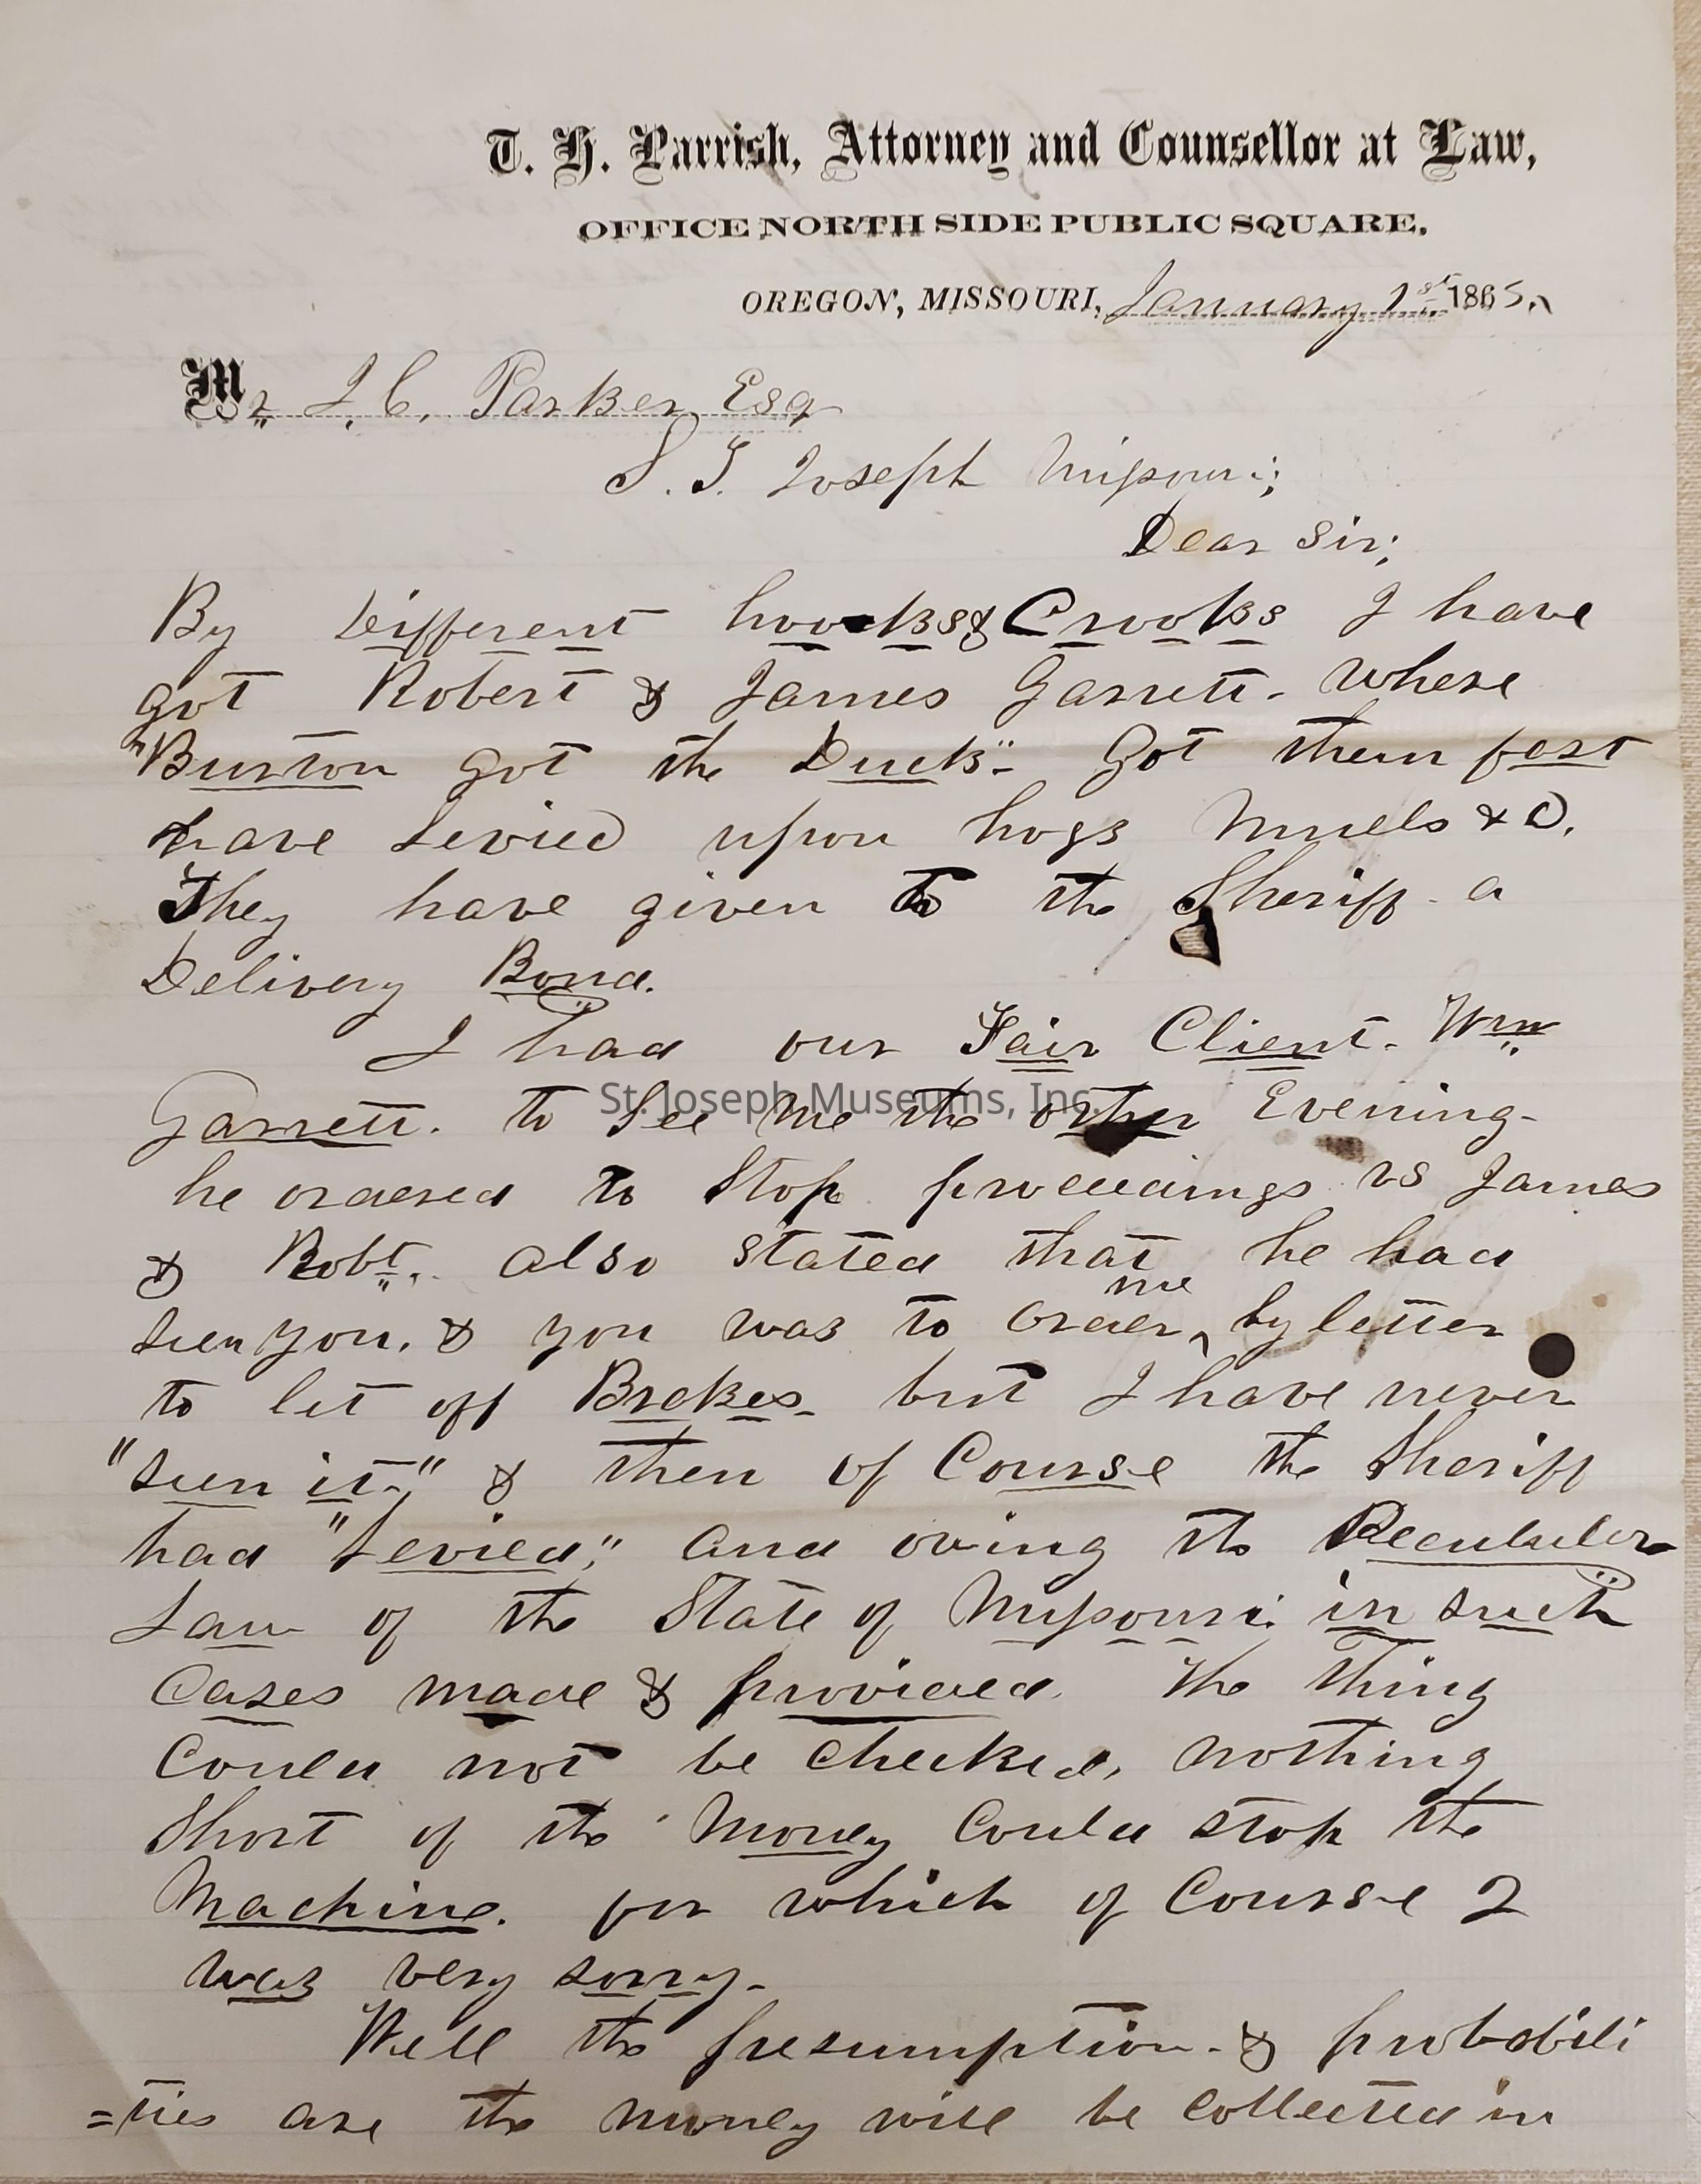 T. H. Parrish, Attorney and Counsellor at Law,
OFFICE NORTH SIDE PUBLIC SQUARE.
OREGON, MISSOURI, January 1st 1865.
Mr J. C. Parker Esq
S. T. Joseph Missouri;
Dear Sir;
By Different hooks & Crooks I have
got Robert & James Garrett. where
"Burton got the Duck" - Got them fast
have Levied upon hogs Muels & C.
They have given to the Sheriff - a
Delivery Bond.
I had our Fair Client. Wm
Garrett. to See me the other Evening -
St. Joseph Museums, Inc.
he ordered to Stop proceedings vs James
& Robt. also stated that he had
seen you. & you was to order me by letter
to let off Brakes - but I have never
"seen it" & then of Course the Sheriff
had "Levied," and owing to
Law of the State of Missouri in such
Cases made & provided. the thing
Could not be checked, nothing
Short of the Money Could stop the
Machine. for which of Course I
was very sorry.
Well the presumption - & probabili
=ties are the money will be collected in